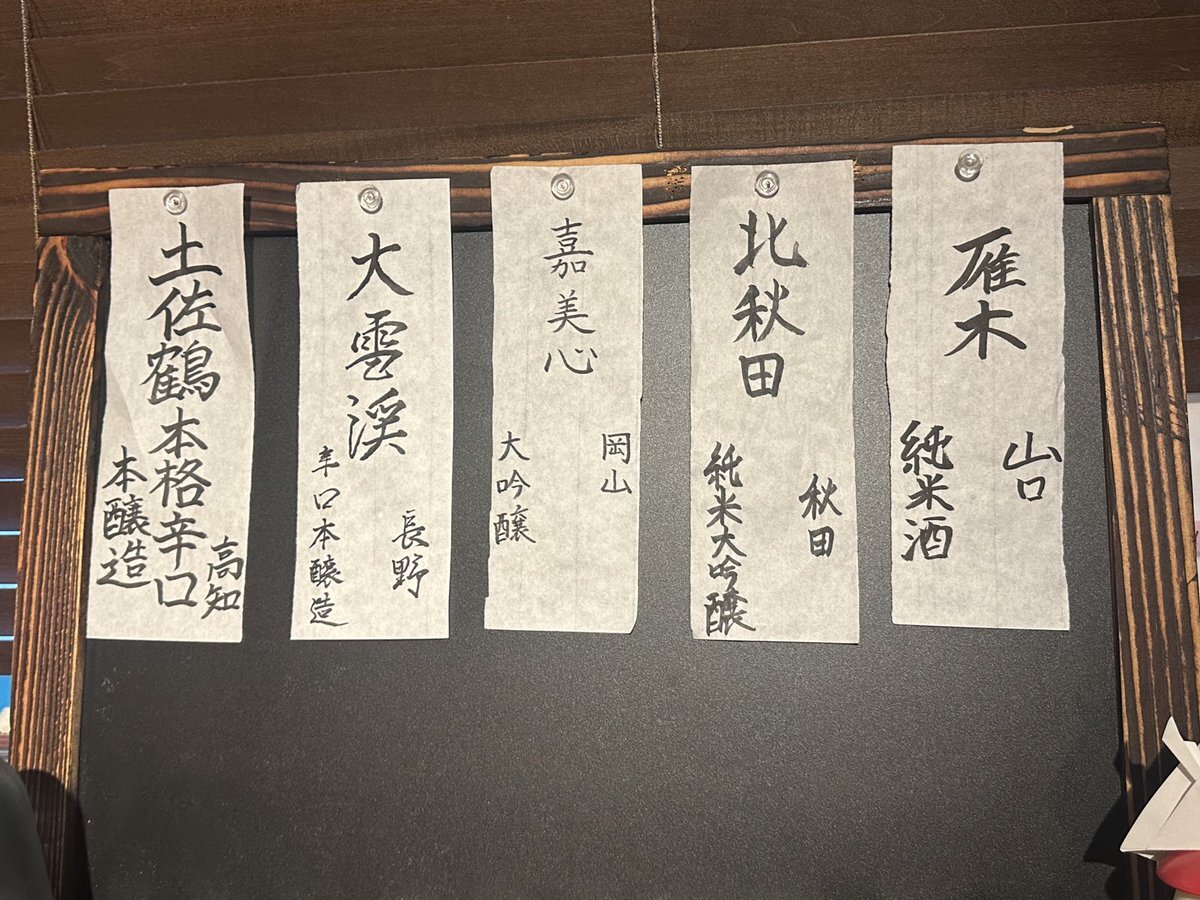 雁木
山口
純米酒
北秋田
秋田
純米大吟醸
嘉美心
岡山
大吟醸
大雪渓
長野
辛口本醸造
土佐鶴本格辛口
高知
本醸造